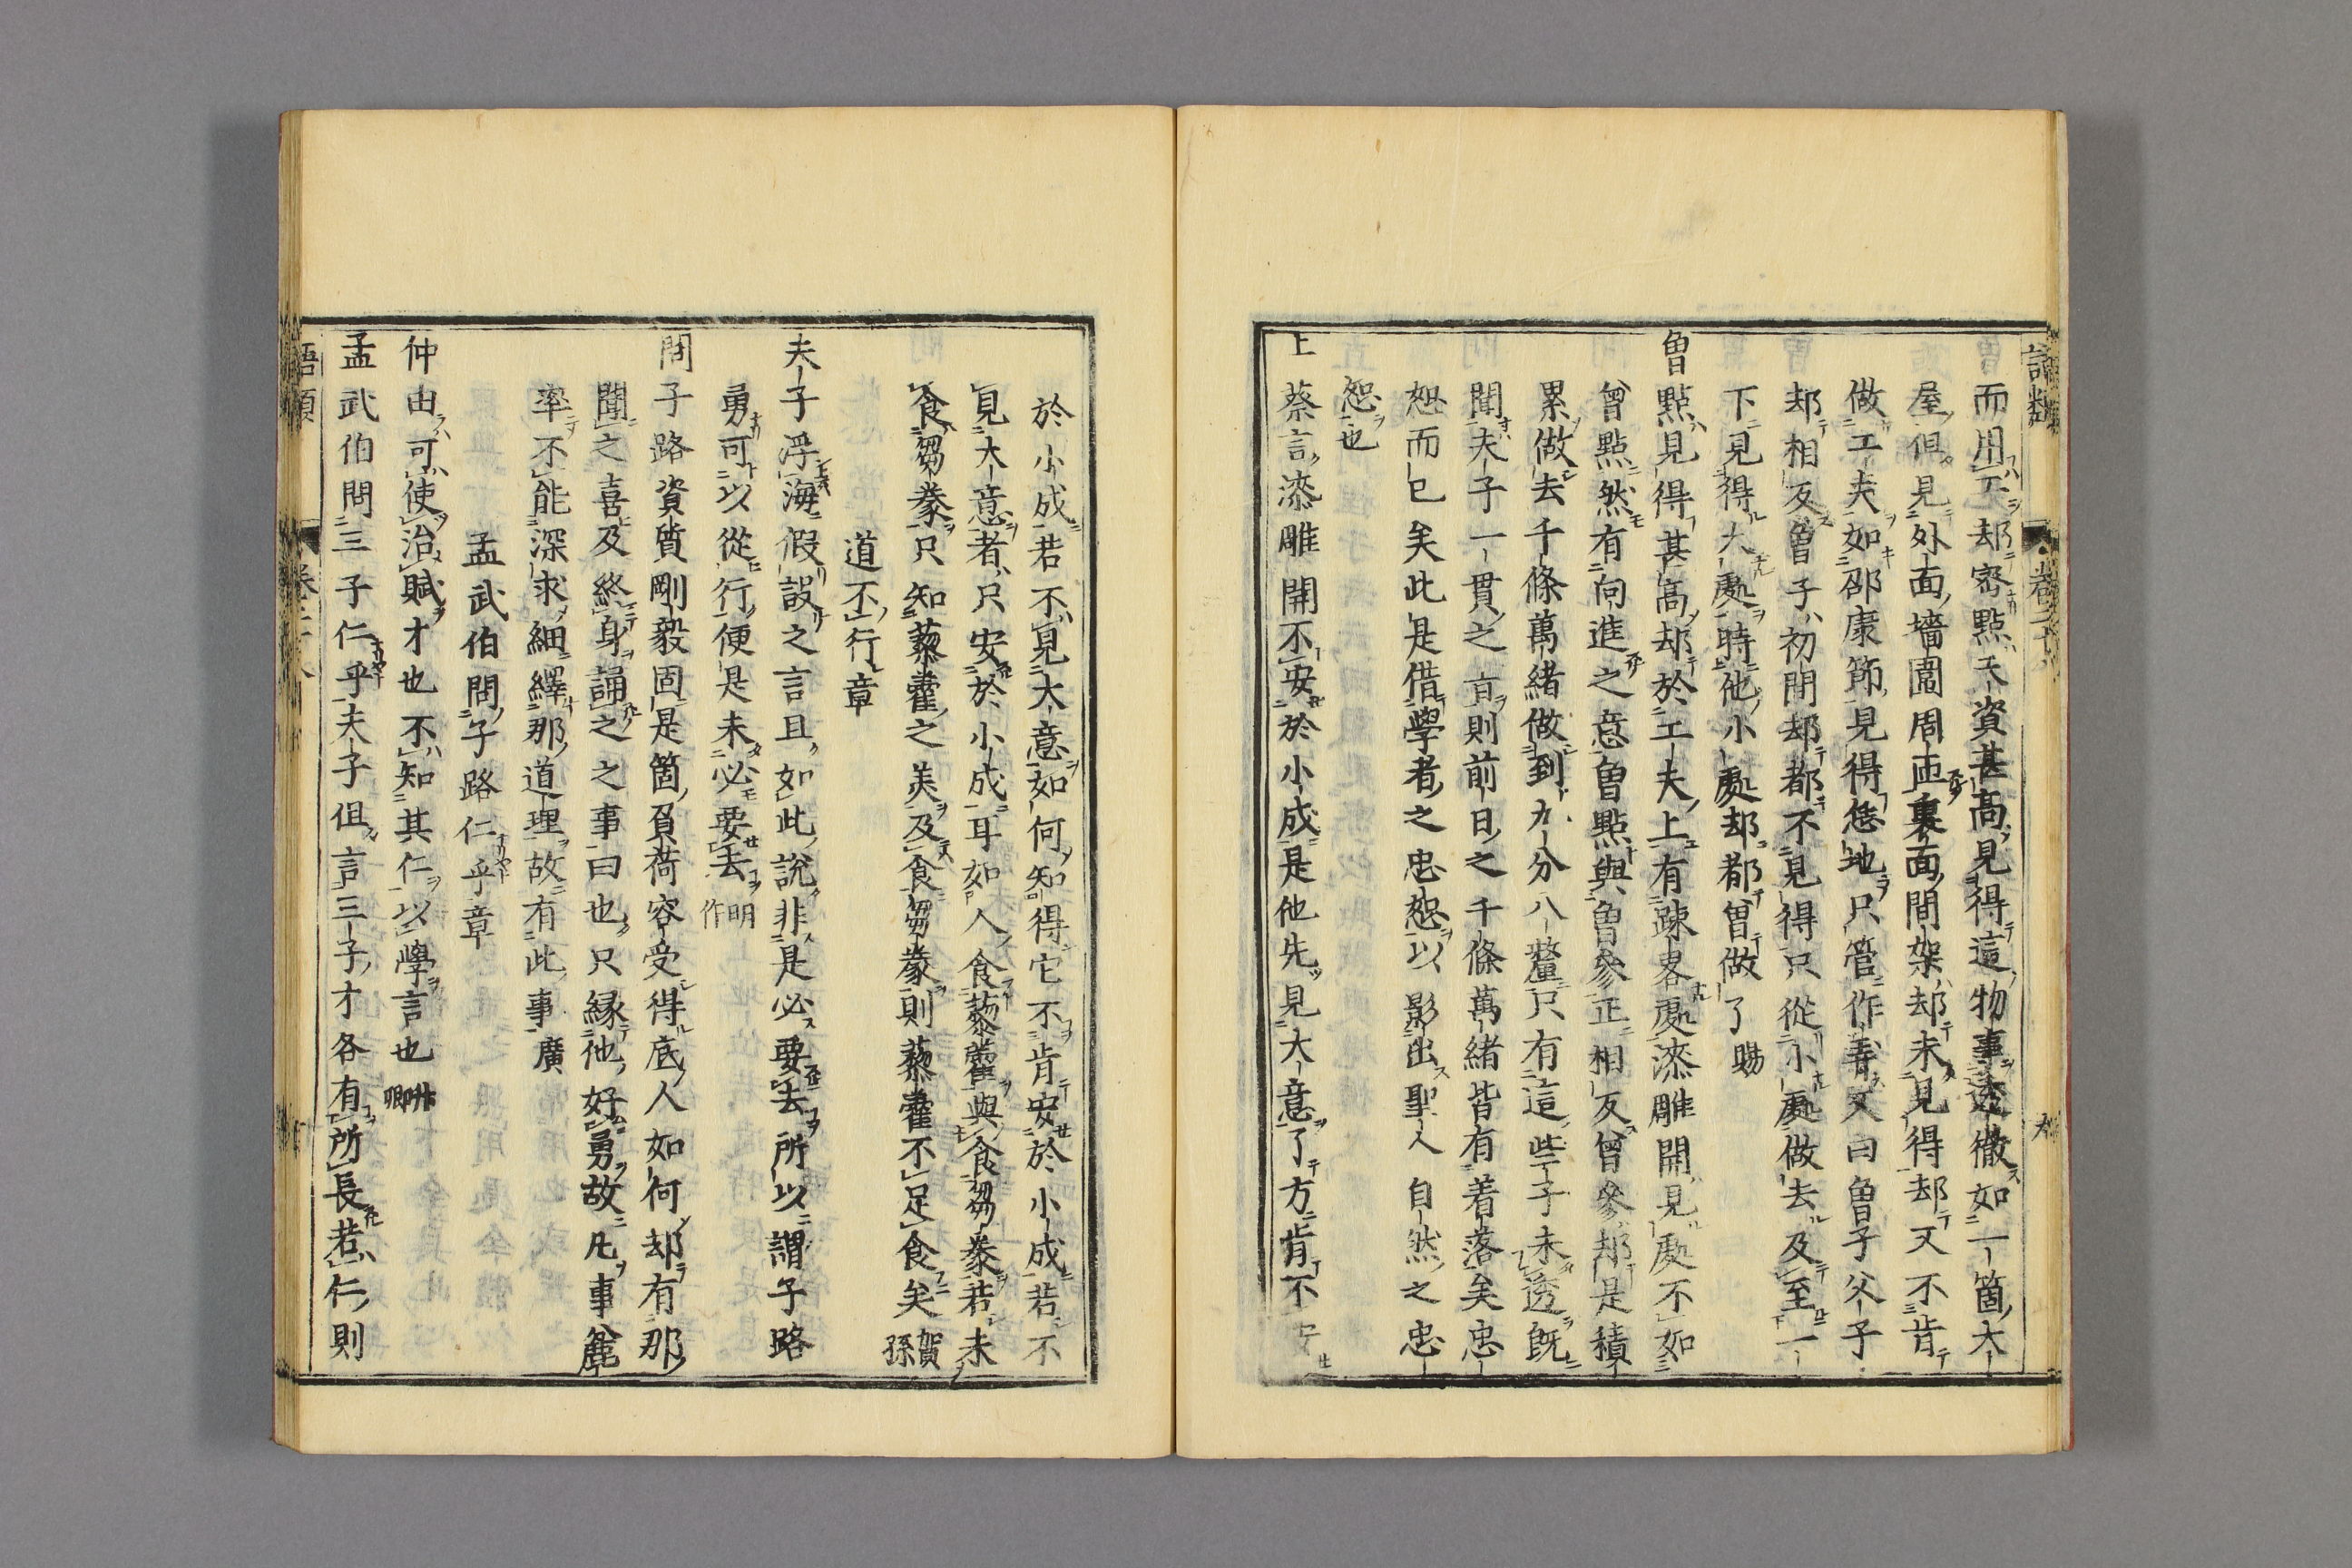 而用工却密點天資甚高見得這物事透徹如一箇大
屋但見外面墻圍周匝裏面間架却未見得却又不肯
做工夫如邵康節見得恁地只管作弄又曰曾子父子
却相反曾子初間却都不見得只從小處做去及至一
下見得大處時他小處却都曾做了 賜
曾點見得甚高却於工夫上有疎畧處漆雕開見處不如
曾點然有向進之意曾點與曾參正相反曾參却是積
累做去千條萬緒做到九分八釐只有這些子未透既
聞夫子一貫之旨則前日之千條萬緒皆有着落矣忠
恕而已矣此是借學者之忠恕以影出聖人自然之忠
恕也
上蔡言漆雕開不安於小成是他先見大意了方肯不安
於小成若不見大意如何知得它不肯安於小成若不
見大意者只安於小成耳如人食藜藿與食芻豢若未
食芻豢只知藜藿之美及食芻豢則藜藿不足食矣 賀孫
道不行章
夫子浮海假設之言且如此說非是必要去所以謂子路
勇可以從行便是未必要去 明作
問子路資質剛毅固是箇負荷容受得底人如何却有那
聞之喜及終身誦之之事曰也只緣他好勇故凡事麄
率不能深求細繹那道理故有此事 廣
孟武伯問子路仁乎章
仲由可使治賦才也不知其仁以學言也
孟武伯問三子仁乎夫子但言三子才各有所長若仁則